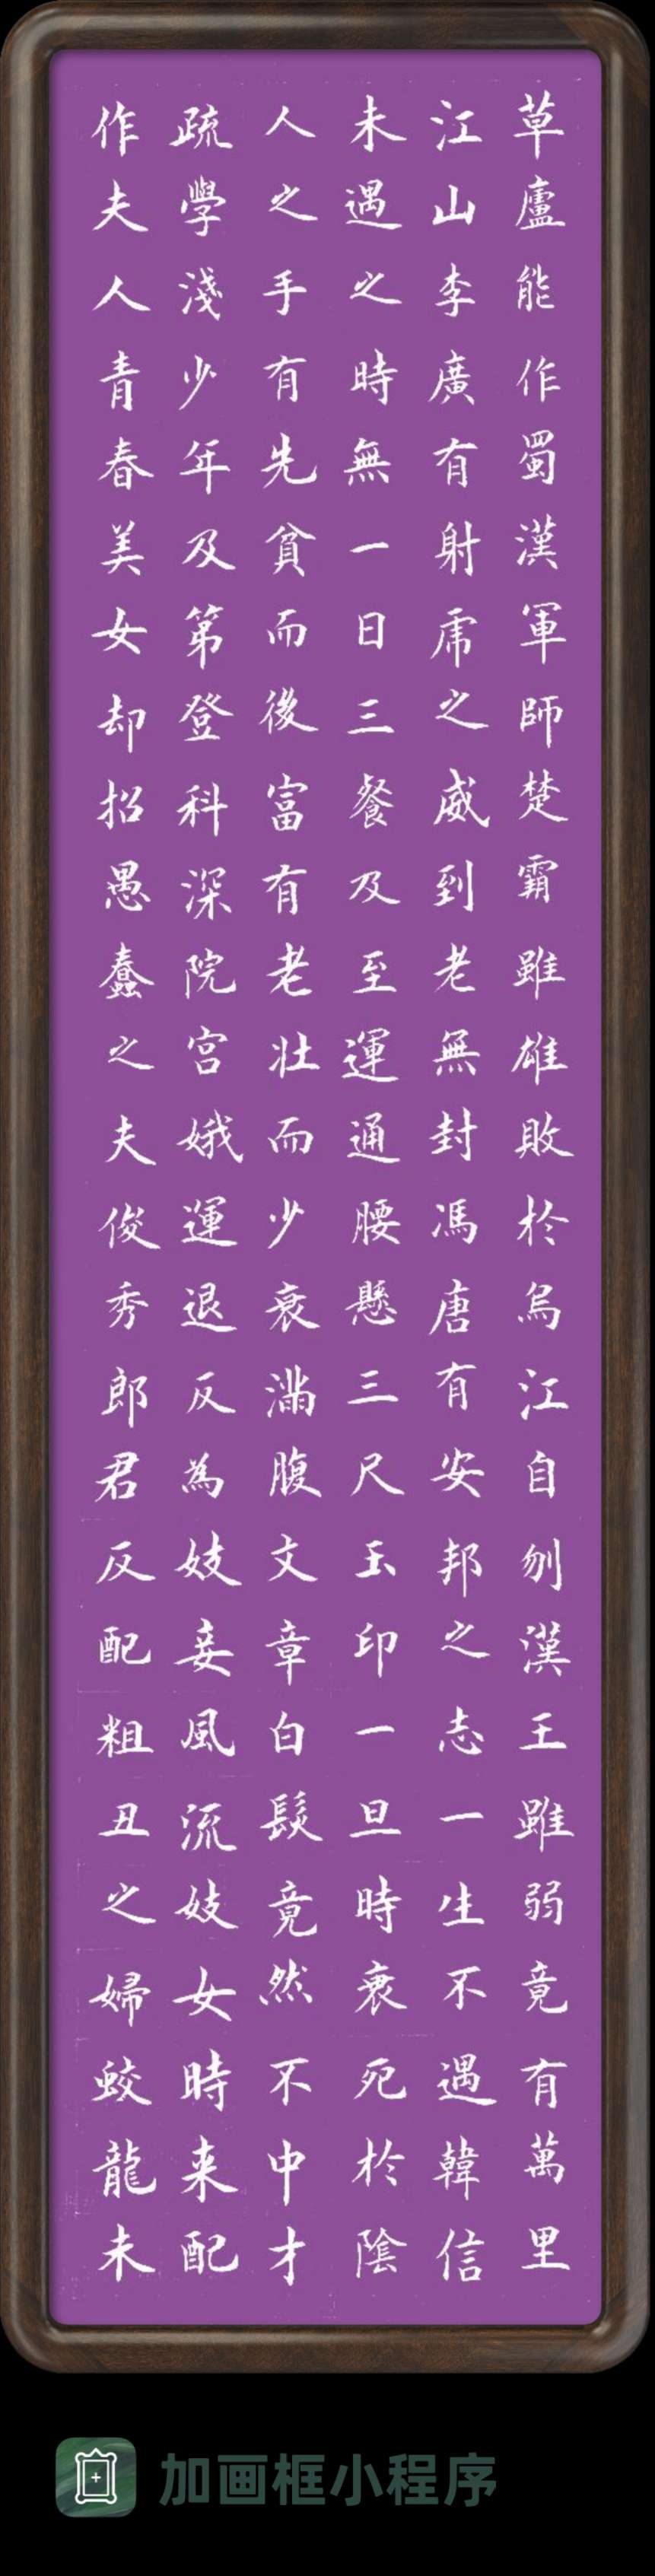 草廬能作蜀漢軍師楚霸雖雄敗於烏江自刎漢王雖弱竟有萬里
江山李廣有射虎之威到老無封馮唐有安邦之志一生不遇韓信
未遇之時無一日三餐及至運通腰懸三尺玉印一旦時衰死於陰
人之手有先貧而後富有老壯而少衰滿腹文章白髮竟然不中才
疏學淺少年及第登科深院宮娥運退反為妓妾風流妓女時来配
作夫人青春美女却招愚蠢之夫俊秀郎君反配粗丑之婦蛟龍未
加画框小程序